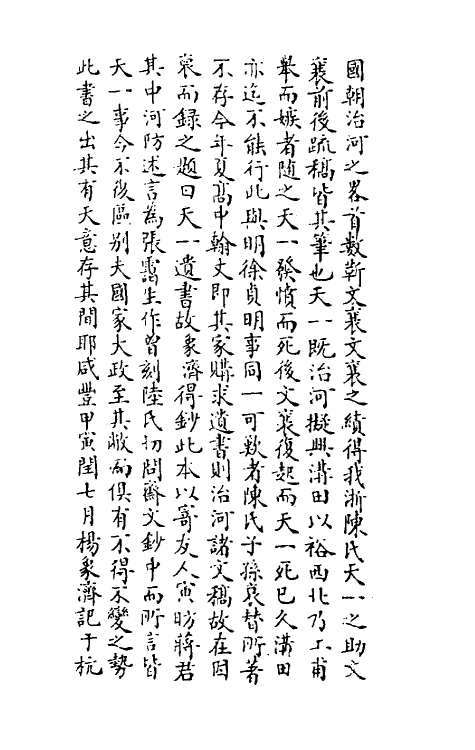 國朝治河之畧首數靳文襄文襄之績得我浙陳氏天一之助文
襄前後疏稿皆其筆也天一既治河擬興溝田以裕西北乃工甫
舉而嫉者隨之天一發憤而死後文襄復起而天一死已久溝田
亦迄不能行此與明徐貞明事同一可歎者陳氏子孫衰替所著
不存今年夏高中翰丈即其家購求遺書則治河諸文稿故在因
裒而録之題曰天一遺書故象濟得鈔此本以寄友人寅昉蔣君
其中河防述言為張靄生作曾刻陸氏切問齋文鈔中而所言皆
天一事今不復區别夫國家大政至其敝而俱有不得不變之勢
此書之出其有天意存其間耶咸豐甲寅閏七月楊象濟記于杭